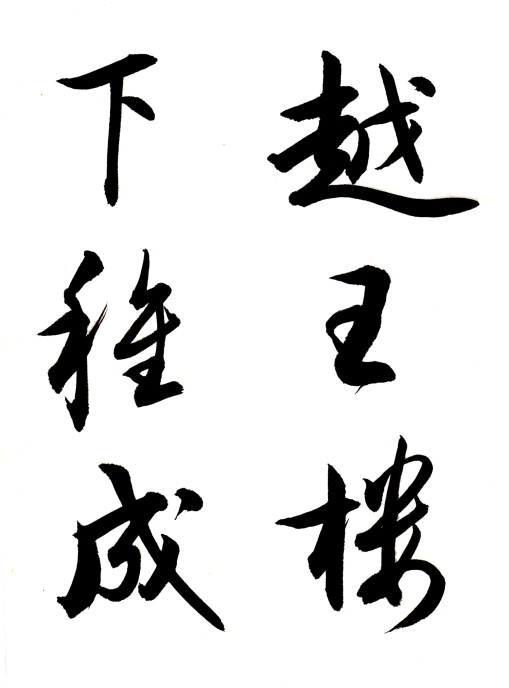 越王楼
下稚成